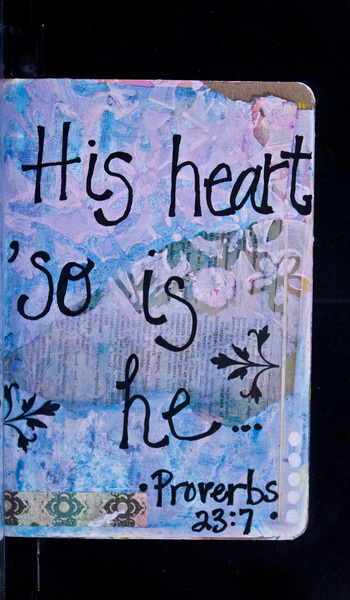 His heart
'so is
he...
• Proverbs
23:7 •